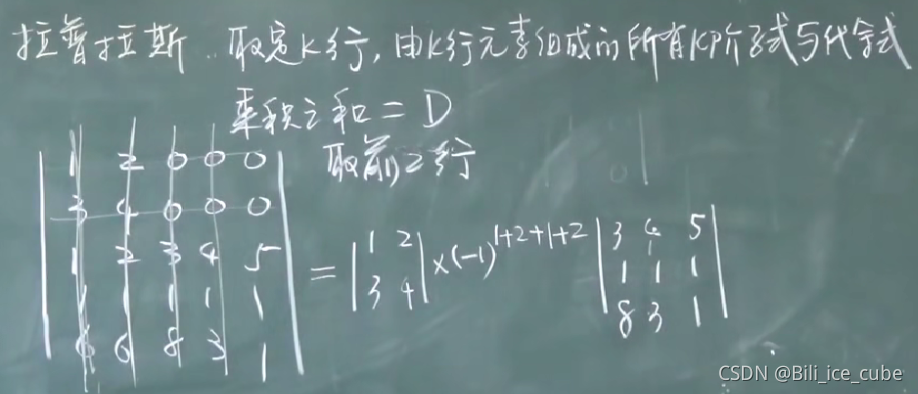 拉普拉斯..取定K行,由K行元素组成的所有K阶子式与代余式
乘积之和=D
取前2行
1 2 0 0 0
3 4 0 0 0
1 2 3 4 5
1 1 1 1 1
6 6 8 3 1
= |1 2
3 4| ×(-1)^{1+2+1+2} |3 4 5
1 1 1
8 3 1|
CSDN @Bili_ice_cube